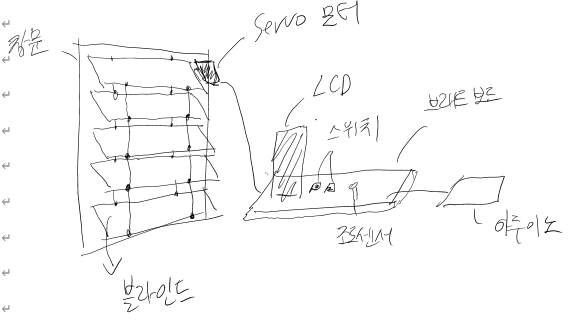 창문
Servo 모터
LCD
스위치
브레드보드
조도센서
아두이노
블라인드